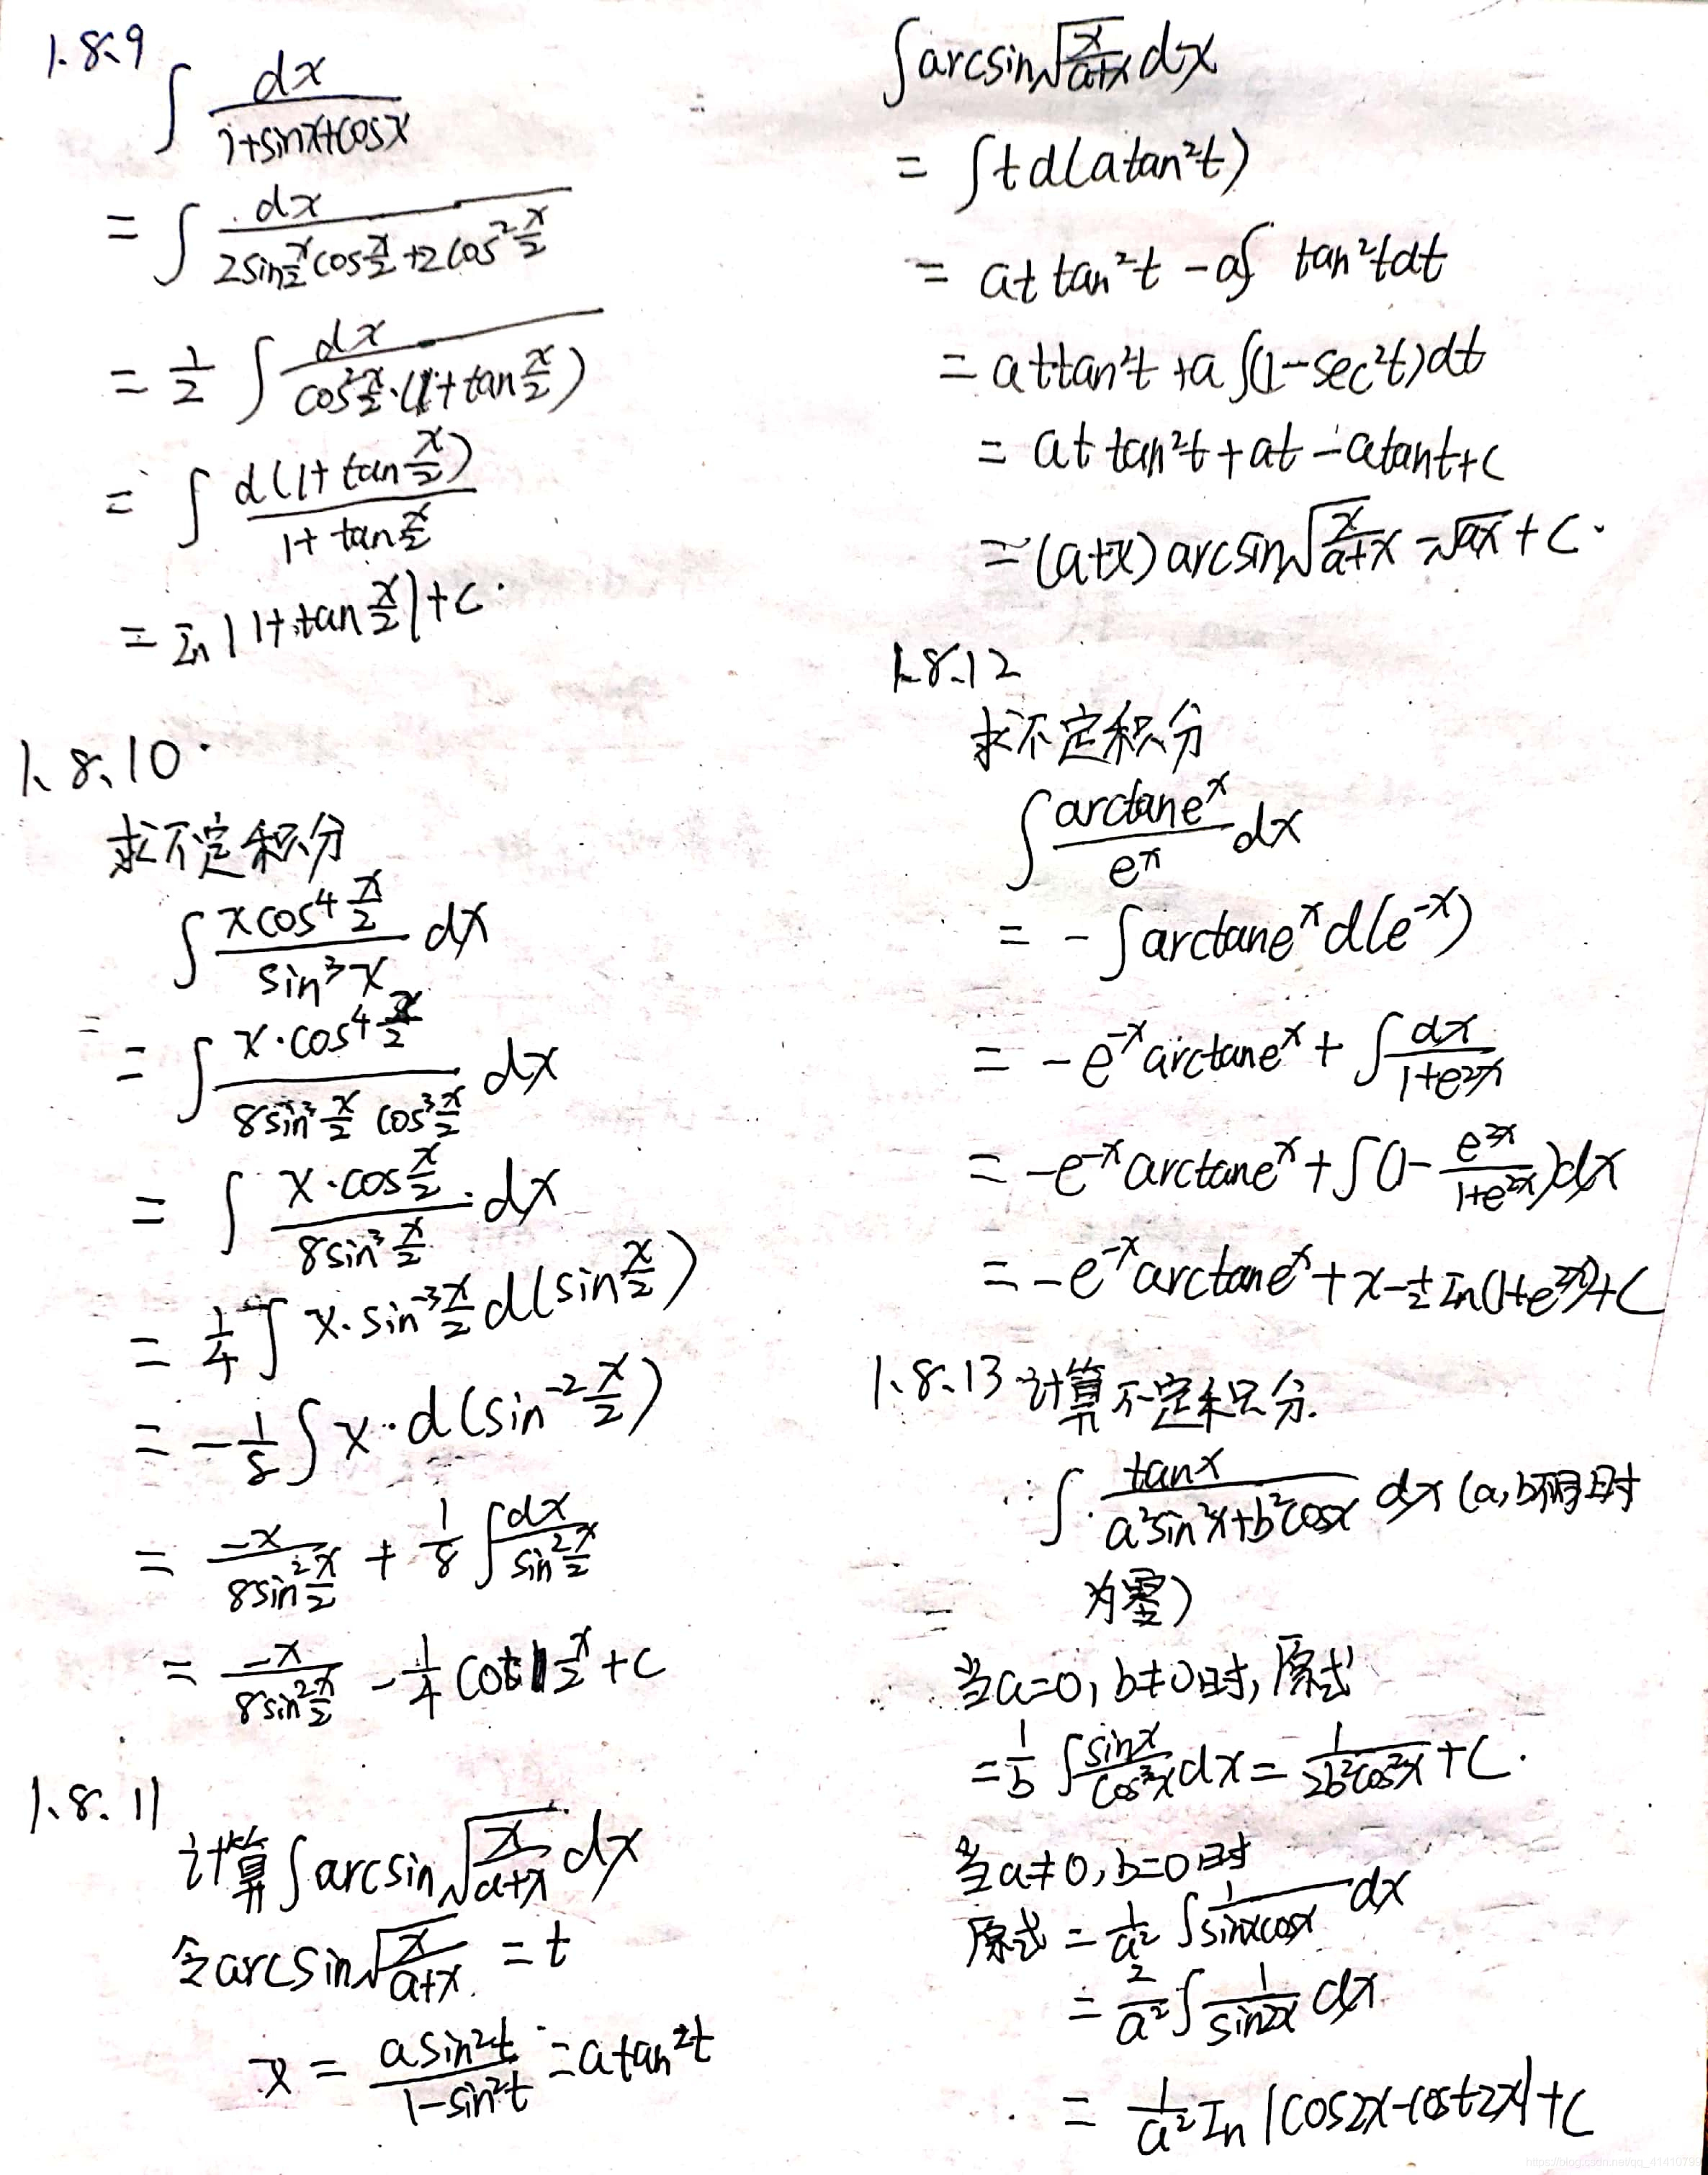 1.8.9
∫ dx/(1+sinx+cosx)
= ∫ dx/(2sin x/2 cos x/2 + 2cos² x/2)
= 1/2 ∫ dx/(cos² x/2 · (1+tan x/2))
= ∫ d(1+tan x/2)/(1+tan x/2)
= In|1+tan x/2|+C.
1、8、10.
求不定积分
∫ xcos⁴ x/2 / sin³x dx
= ∫ x·cos⁴ x/2 / (8sin³ x/2 cos³ x/2) dx
= ∫ x·cos x/2 / (8sin³ x/2) · dx
= 1/4 ∫ x·sin⁻³ x/2 d(sin x/2)
= -1/8 ∫ x·d(sin⁻² x/2)
= -x/(8sin² x/2) + 1/8 ∫ dx/(sin² x/2)
= -x/(8sin² x/2) - 1/4 cot x/2 + C
1、8、11
计算∫arcsin√(x/(a+x)) dx
令arcsin√(x/(a+x)) = t
x = asin²t/(1-sin²t) = atan²t
∫arcsin√(x/(a+x)) dx
= ∫td(atan²t)
= at tan²t - a∫ tan²tdt
= at tan²t + a∫(1-sec²t)dt
= at tan²t + at - atant+C
= (a+x)arcsin√(x/(a+x)) - √(ax) + C.
1.8.12
求不定积分
∫ arctaneˣ/eˣ dx
= -∫arctaneˣd(e⁻ˣ)
= -e⁻ˣarctaneˣ + ∫ dx/(1+e²ˣ)
= -e⁻ˣarctaneˣ + ∫(1 - e²ˣ/(1+e²ˣ))dx
= -e⁻ˣarctaneˣ + x - 1/2 In(1+e²ˣ)+C
1、8、13 计算不定积分.
∫ tanx/(a²sin²x+b²cosx) dx (a,b不同时
为零)
当a=0,b≠0时,原式
= 1/b ∫ sinx/cos³x dx = 1/(2b²cos²x) + C.
当a≠0,b=0时
原式 = 1/a² ∫ 1/(sinxcosx) dx
= 2/a² ∫ 1/sin2x dx
= 1/a² In|cos2x-cot2x|+C